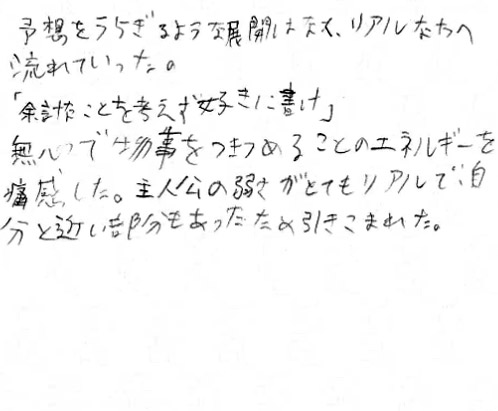 予想をうらぎるような展開はなく、リアルなたへ
流れていった。
「余計なことを考えず好きに書け」
無心で物事をつきつめることのエネルギーを
痛感した。主人公の弱さがとてもリアルで自
分と近い部分もあったため引きこまれた。